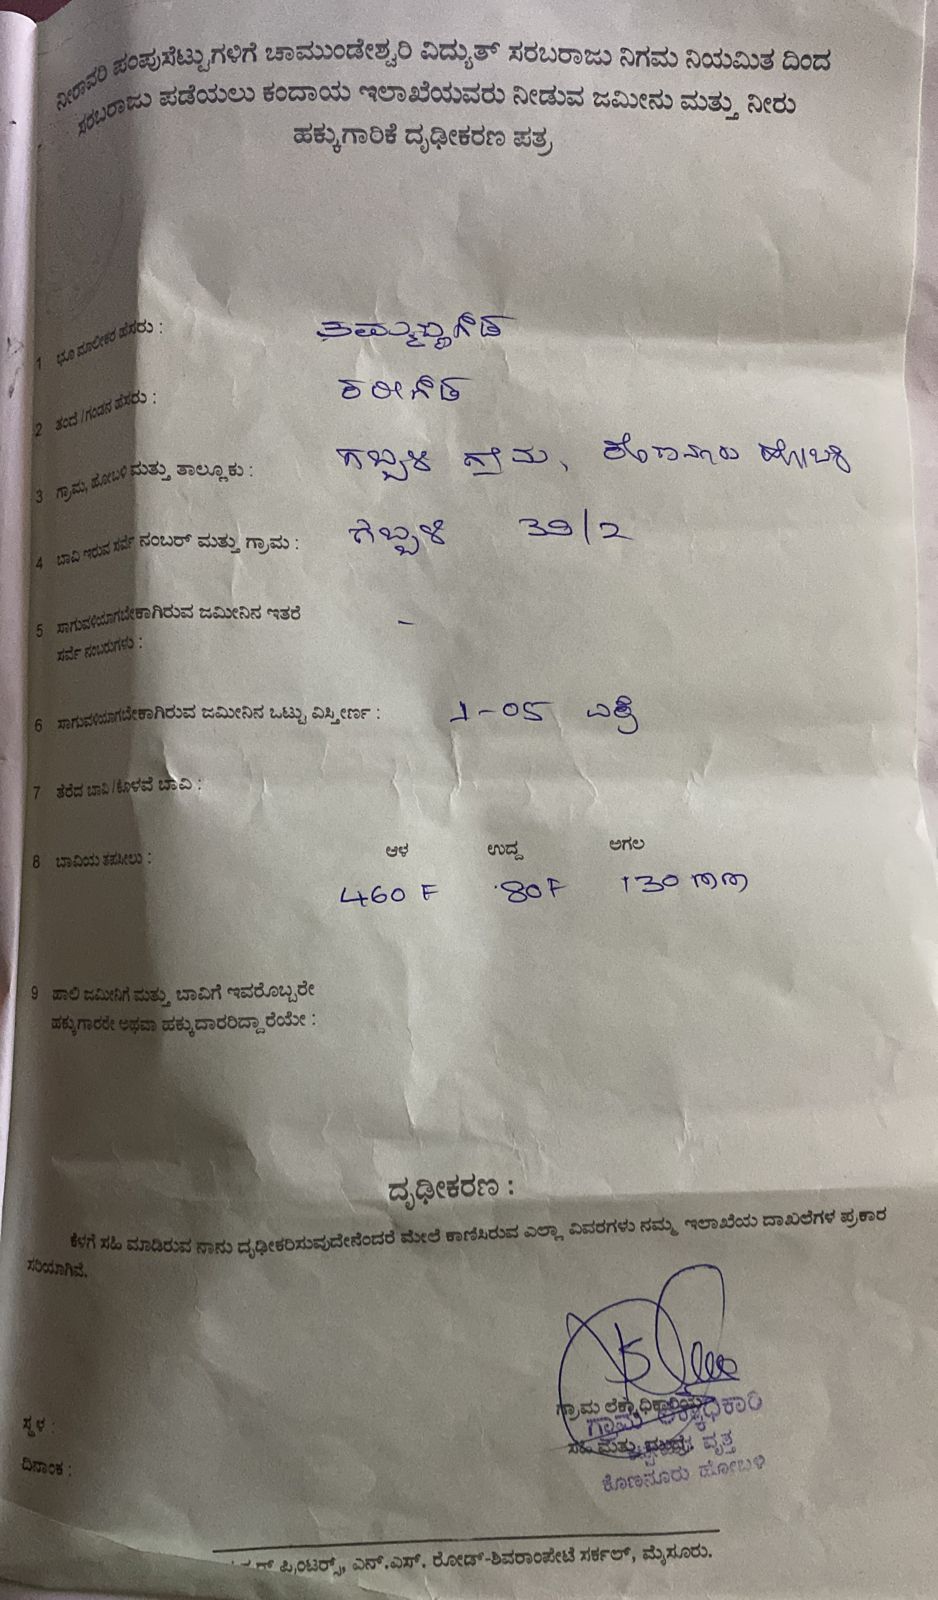 ನೀರಾವರಿ ಪಂಪುಸೆಟ್ಟುಗಳಿಗೆ ಚಾಮುಂಡೇಶ್ವರಿ ವಿದ್ಯುತ್ ಸರಬರಾಜು ನಿಗಮ ನಿಯಮಿತ ದಿಂದ
ಸರಬರಾಜು ಪಡೆಯಲು ಕಂದಾಯ ಇಲಾಖೆಯವರು ನೀಡುವ ಜಮೀನು ಮತ್ತು ನೀರು
ಹಕ್ಕುಗಾರಿಕೆ ದೃಢೀಕರಣ ಪತ್ರ
1 ಭೂ ಮಾಲೀಕರ ಹೆಸರು : ತಮ್ಮಣ್ಣಗೌಡ
2 ತಂದೆ/ಗಂಡನ ಹೆಸರು : ಕರೀಗೌಡ
3 ಗ್ರಾಮ, ಹೋಬಳಿ ಮತ್ತು ತಾಲ್ಲೂಕು : ಗಬ್ಬಳಿ ಗ್ರಾಮ, ಕೊಣನೂರು ಹೋಬಳಿ
4 ಬಾವಿ ಇರುವ ಸರ್ವೆ ನಂಬರ್ ಮತ್ತು ಗ್ರಾಮ : ಗಬ್ಬಳಿ 39/2
5 ಸಾಗುವಳಿಯಾಗಬೇಕಾಗಿರುವ ಜಮೀನಿನ ಇತರೆ -
ಸರ್ವೆ ನಂಬರುಗಳು :
6 ಸಾಗುವಳಿಯಾಗಬೇಕಾಗಿರುವ ಜಮೀನಿನ ಒಟ್ಟು ವಿಸ್ತೀರ್ಣ : 1-05 ಎಕ್ರೆ
7 ತೆರೆದ ಬಾವಿ/ಕೊಳವೆ ಬಾವಿ :
8 ಬಾವಿಯ ತಪಸೀಲು : ಆಳ ಉದ್ದ ಅಗಲ
460 F 80 F 130 mm
9 ಹಾಲಿ ಜಮೀನಿಗೆ ಮತ್ತು ಬಾವಿಗೆ ಇವರೊಬ್ಬರೇ
ಹಕ್ಕುಗಾರರೇ ಅಥವಾ ಹಕ್ಕುದಾರರಿದ್ದಾರೆಯೇ :
ದೃಢೀಕರಣ :
ಕೆಳಗೆ ಸಹಿ ಮಾಡಿರುವ ನಾನು ದೃಢೀಕರಿಸುವುದೇನೆಂದರೆ ಮೇಲೆ ಕಾಣಿಸಿರುವ ಎಲ್ಲಾ ವಿವರಗಳು ನಮ್ಮ ಇಲಾಖೆಯ ದಾಖಲೆಗಳ ಪ್ರಕಾರ
ಸರಿಯಾಗಿವೆ.
ಗ್ರಾಮ ಲೆಕ್ಕಾಧಿಕಾರಿಯ
ಗ್ರಾಮ ಲೆಕ್ಕಾಧಿಕಾರಿ
ಸ್ಥಳ :
ಸಹಿ ಮತ್ತು ಮುದ್ರೆ
ವೃತ್ತ
ದಿನಾಂಕ :
ಕೊಣನೂರು ಹೋಬಳಿ
ಪ್ರಿಂಟರ್ಸ್, ಎನ್.ಎಸ್. ರೋಡ್-ಶಿವರಾಂಪೇಟೆ ಸರ್ಕಲ್, ಮೈಸೂರು.